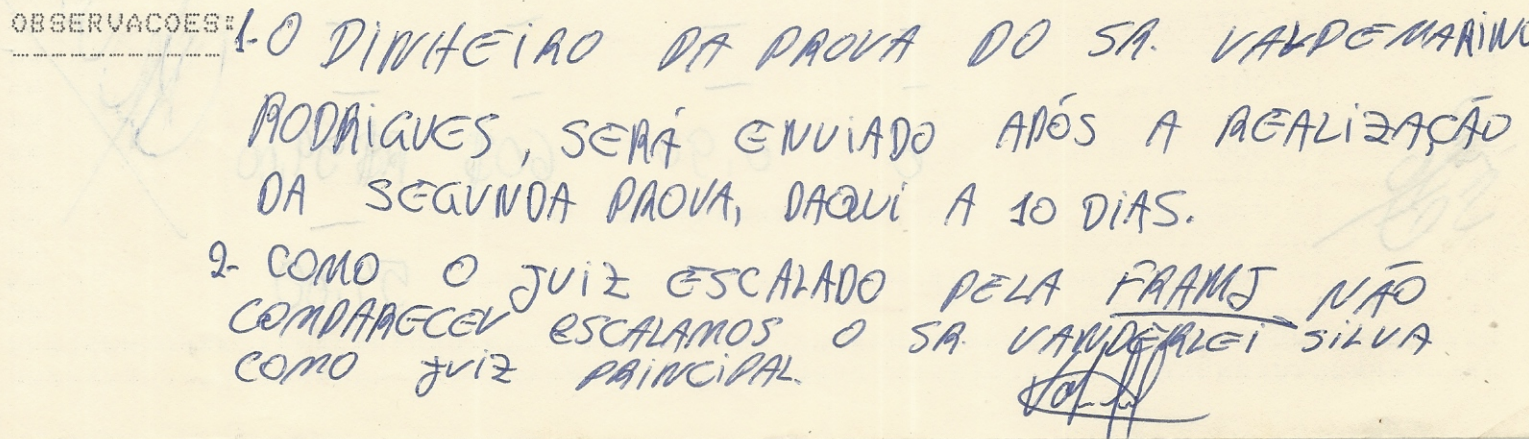 OBSERVACOES: 1- O DINHEIRO DA PROVA DO SR. VALDEMARINO
RODRIGUES, SERÁ ENVIADO APÓS A REALIZAÇÃO
DA SEGUNDA PROVA, DAQUI A 10 DIAS.
2- COMO O JUIZ ESCALADO PELA FRAMJ NÃO
COMPARECEU ESCALAMOS O SR. VANDERLEI SILVA
COMO JUIZ PRINCIPAL.